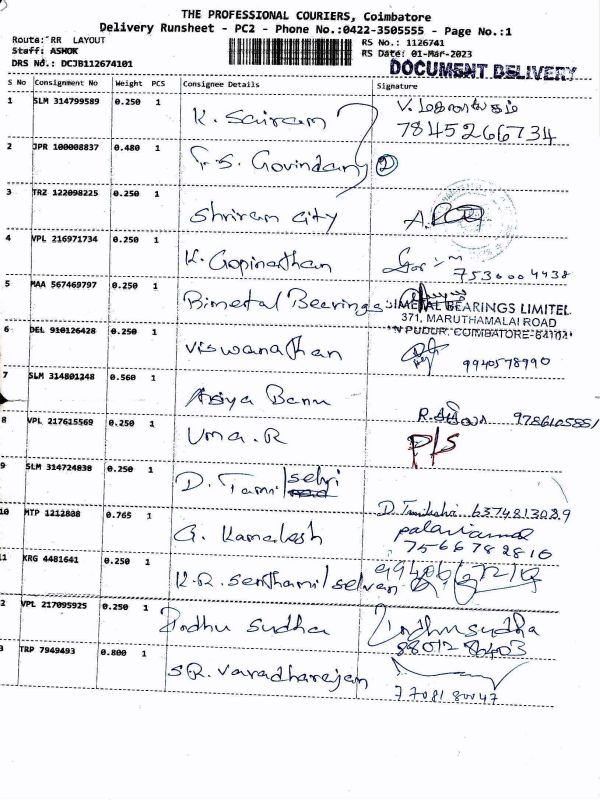 THE PROFESSIONAL COURIERS, Coimbatore
Delivery Runsheet - PC2 - Phone No.:0422-3505555 - Page No.:1
Route: RR LAYOUT
RS No.: 1126741
Staff: ASHOK
RS Date: 01-Mar-2023
DRS No.: DCJB112674101
DOCUMENT DELIVERY
S No Consignment No Weight PCS Consignee Details Signature
1 SLM 314799589 0.250 1 K. Sairam
7845266734
2 JPR 100008837 0.480 1 S. Govindaraj 2
3 TRZ 122098225 0.250 1 Shriram City A.
4 VPL 216971734 0.250 1 K. Gopinathan
7530004438
5 MAA 567469797 0.250 1 Bimetal Bearings
BIMETAL BEARINGS LIMITED
371, MARUTHAMALAI ROAD
N PUDUR, COIMBATORE-641041
6 DEL 910126428 0.250 1 Viswanathan 9940578990
7 SLM 314801248 0.560 1 Asiya Banu
R. 9786105851
8 VPL 217615569 0.250 1 Uma.R P/S
9 SLM 314724838 0.250 1 D. Tamil selvi
D. 6374813089
10 MTP 1212808 0.765 1 G. Kamalesh palaniamal
7566782810
11 KRG 4481641 0.250 1 K.R. Senthamil selvan
2 VPL 217095925 0.250 1 Indhu Sudha Indhusudha
3 TRP 7949493 0.800 1 SR. Varadharajan
7708180047